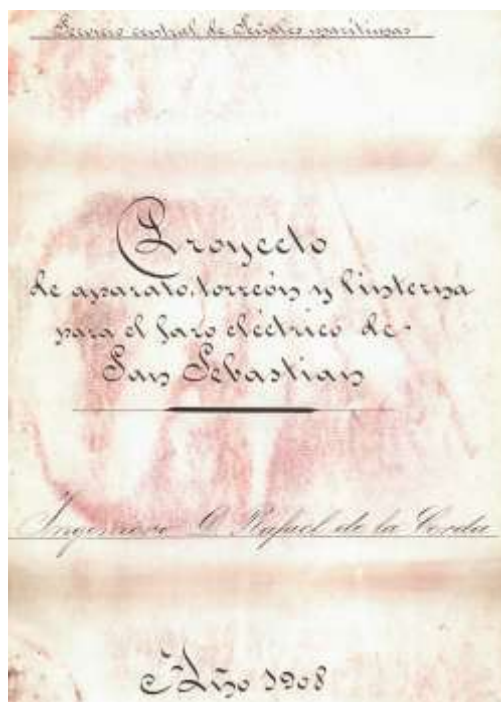 Servicio central de Señales marítimas
Proyecto
de aparato, torreón y linterna
para el faro eléctrico de
San Sebastian
Ingeniero D. Rafael de la Cerda
Año 1908